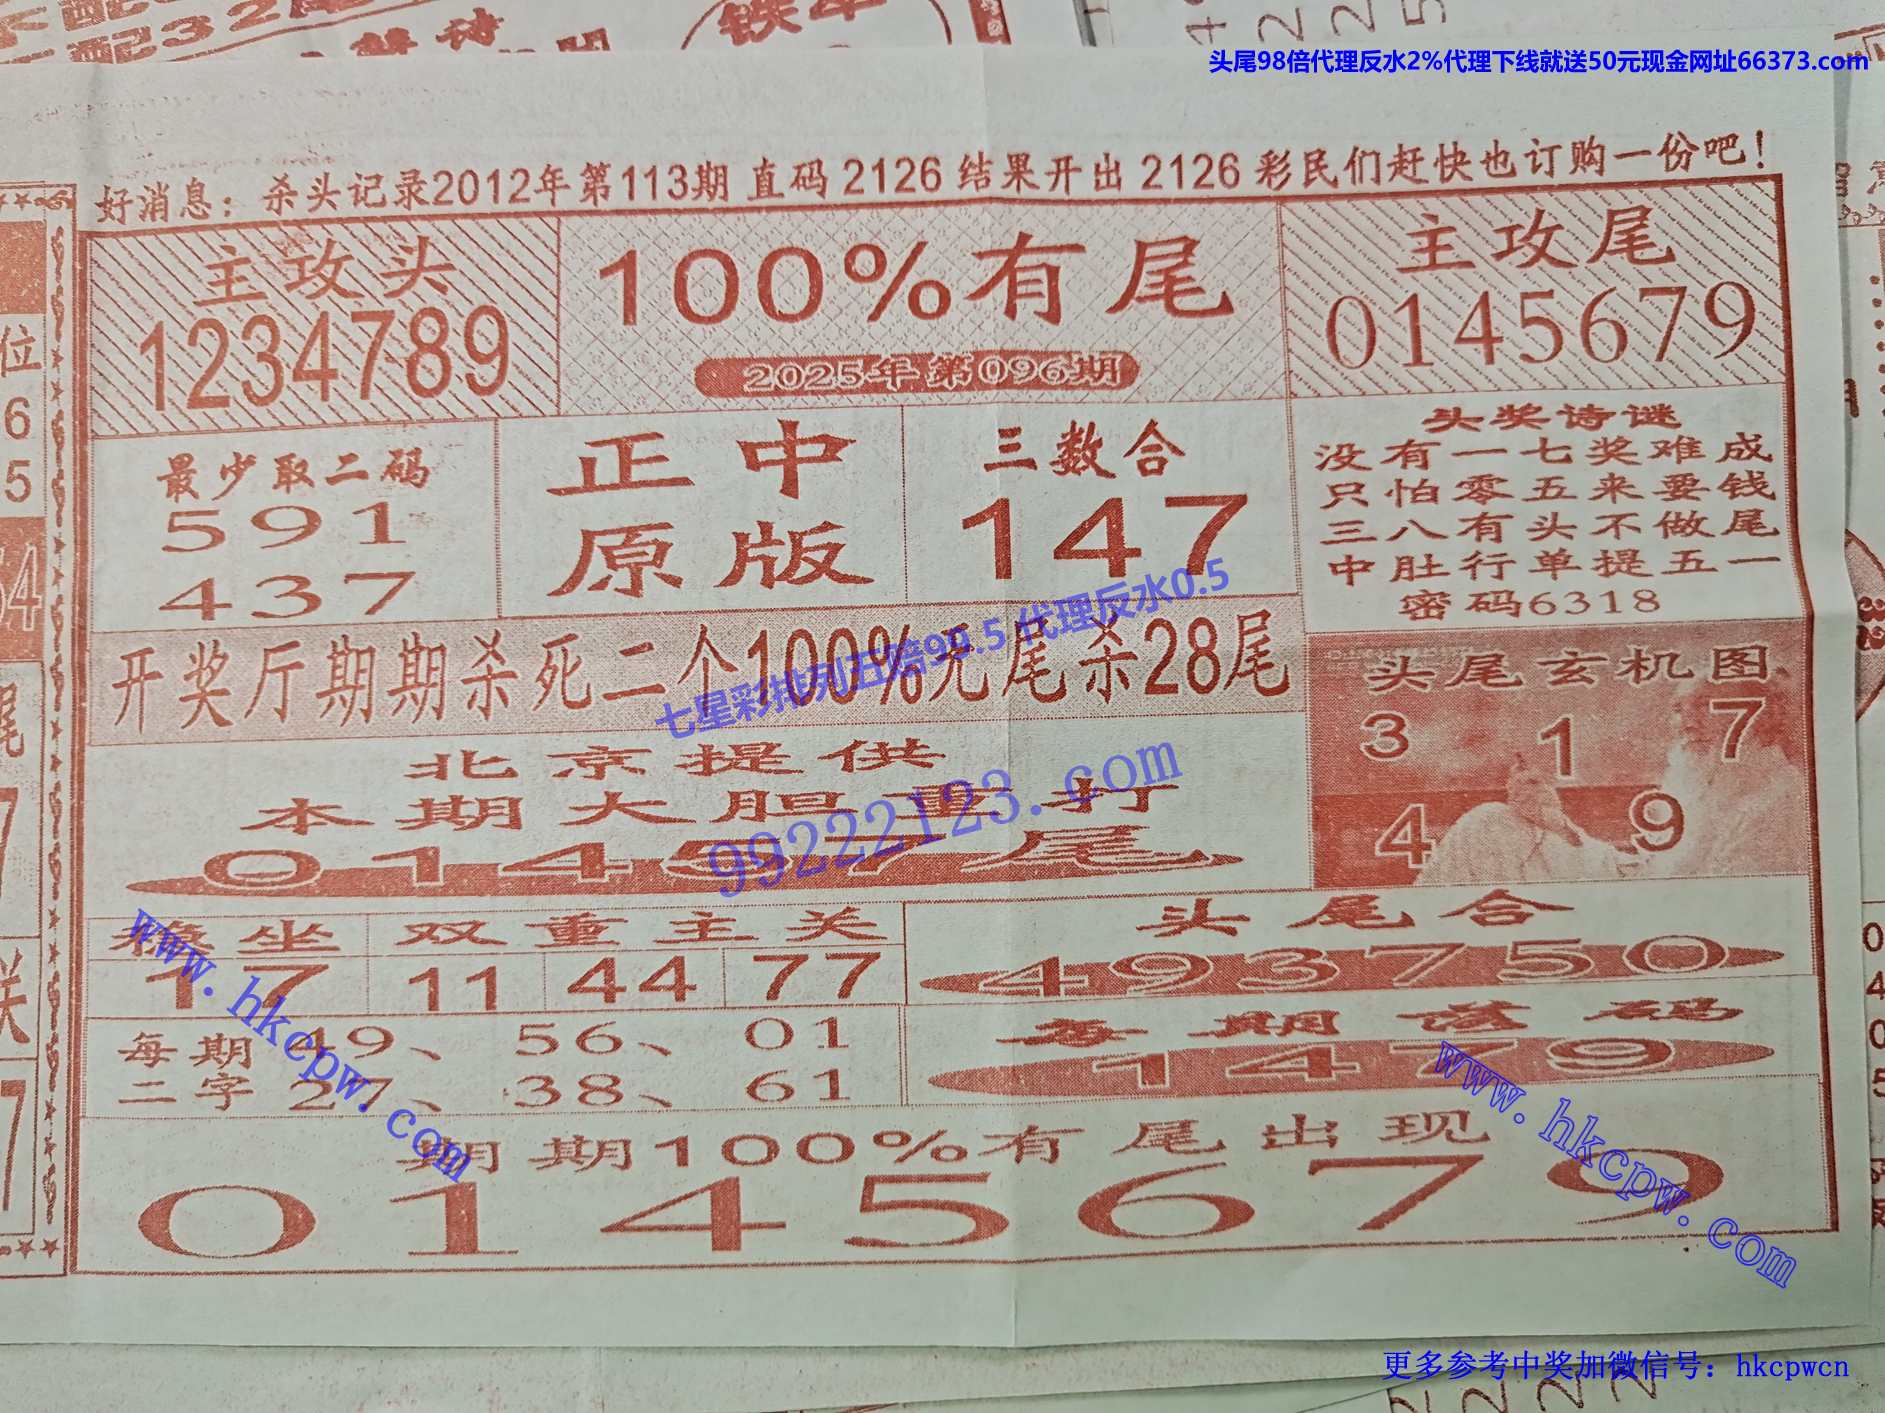 头尾98倍代理反水2%代理下线就送50元现金网址66373.com
好消息：杀头记录2012年第113期 直码 2126 结果开出 2126 彩民们赶快也订购一份吧！
主攻头
1234789
100%有尾
2025年第096期
主攻尾
0145679
最少取二码
591
437
正中
原版
三数合
147
头奖诗谜
没有一七奖难成
只怕零五来要钱
三八有头不做尾
中肚行单提五一
密码6318
开奖厅期期杀死二个100%无尾杀28尾
七星彩排列五赔99.5 代理反水0.5
头尾玄机图
3 1 7
4 9
北京提供
本期大胆重打
01457尾
99222123.com
稳坐
17
双重主关
11 44 77
头尾合
493750
每期
二字
49、 56、 01
27、 38、 61
每期落码
1479
www.hkcpw.com
www.hkcpw.com
期期100%有尾出现
0145679
更多参考中奖加微信号：hkcpwcn